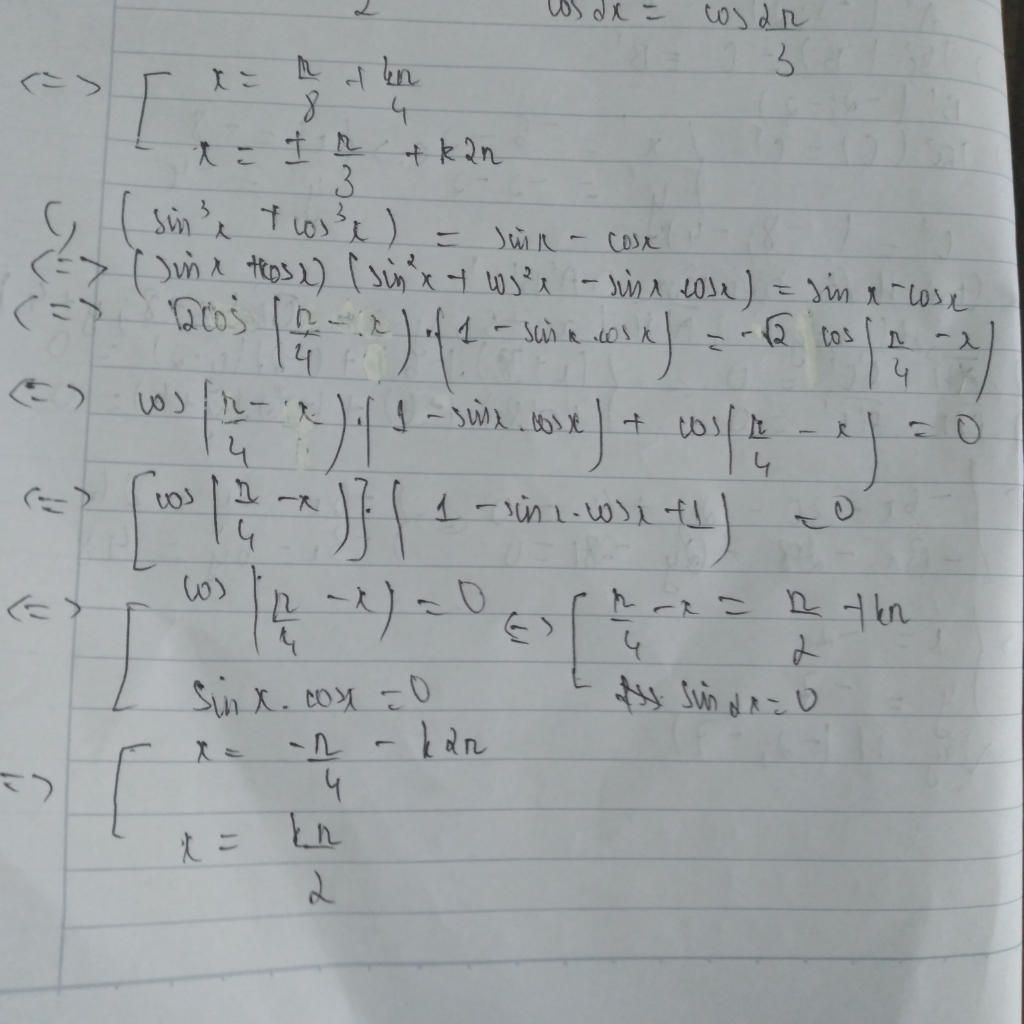 2 cos 2x = cos 2π/3
<=> [ x = π/8 + kπ/4
x = ± π/3 + k2π
c, (sin³x + cos³x) = sin x - cos x
<=> (sin x + cos x) (sin²x + cos²x - sin x cos x) = sin x - cos x
<=> √2 cos (π/4 - x) . (1 - sin x . cos x) = -√2 cos (π/4 - x)
<=> cos (π/4 - x) . (1 - sin x . cos x) + cos (π/4 - x) = 0
<=> [cos (π/4 - x)] . (1 - sin x . cos x + 1) = 0
<=> [ cos (π/4 - x) = 0 <=> [ π/4 - x = π/2 + kπ
sin x . cos x = 0 sin 2x = 0
=> [ x = -π/4 - k2π
x = kπ/2